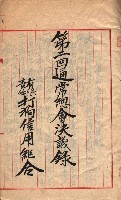 第二回通常總會決議錄
打狗信用組合